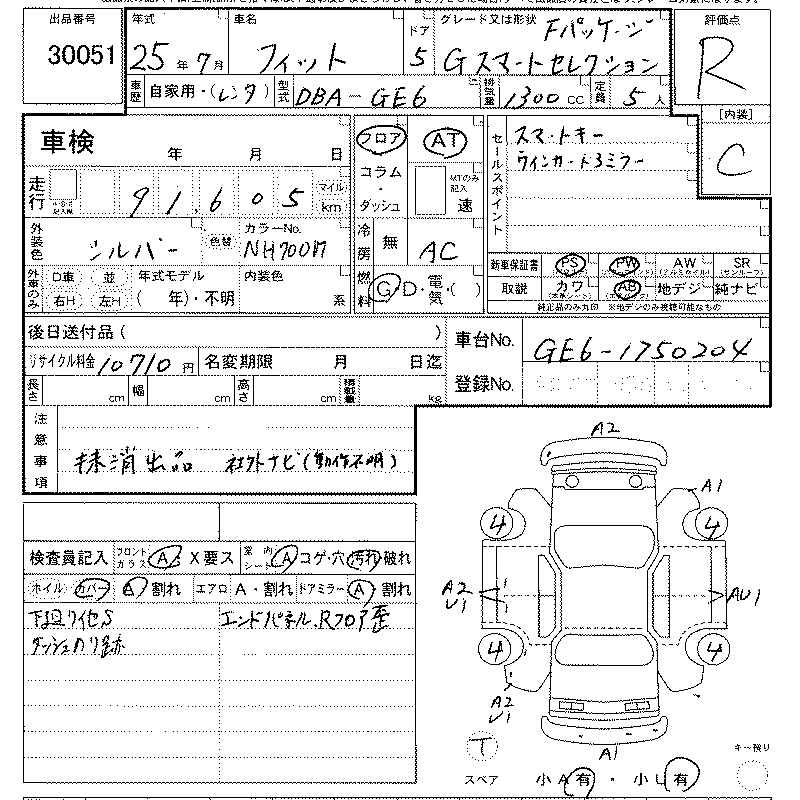 出品番号
30051
年式
25年7月
車名
フィット
ドア
5
グレード又は形状
Fパッケージ
Gスマートセレクション
評価点
R
車歴
自家用・(レンタ)
型式
DBA-GE6
排気量
1300cc
定員
5人
[内装]
C
車検
年 月 日
フロア
AT
コラム
・
ダッシュ
MTのみ記入
速
セールスポイント
スマートキー
ウィンカードアミラー
走行
91,605
マイル
km
外装色
シルバー
色替
カラーNo.
NH700M
冷房
無
AC
外車のみ
D車
並
右H
左H
年式モデル
( 年)・不明
内装色
系
燃料
G・D・電気・( )
新車保証書
PS
PW
AW
(アルミホイル)
SR
(サンルーフ)
取説
カワ
(本革シート)
AB
地デジ
純ナビ
純正品のみ丸囲 ※地デジのみ視聴可能なもの
後日送付品( )
車台No.
GE6-1750204
リサイクル料金
10710円
名変期限 月 日迄
登録No.
長さ cm
幅 cm
高さ cm
積載量 kg
注意事項
抹消出品 社外ナビ(動作不明)
検査員記入
フロントガラス
A・X要ス
室内シート
A コゲ・穴 汚れ 破れ
ホイル カバー
A 割れ
エアロ
A・割れ
ドアミラー
A 割れ
エンドパネル、Rフロア歪
A2
A1
4
4
A2
U1
AU1
4
4
A2
U1
A1
T
スペア
小A有・小U有
キー残り